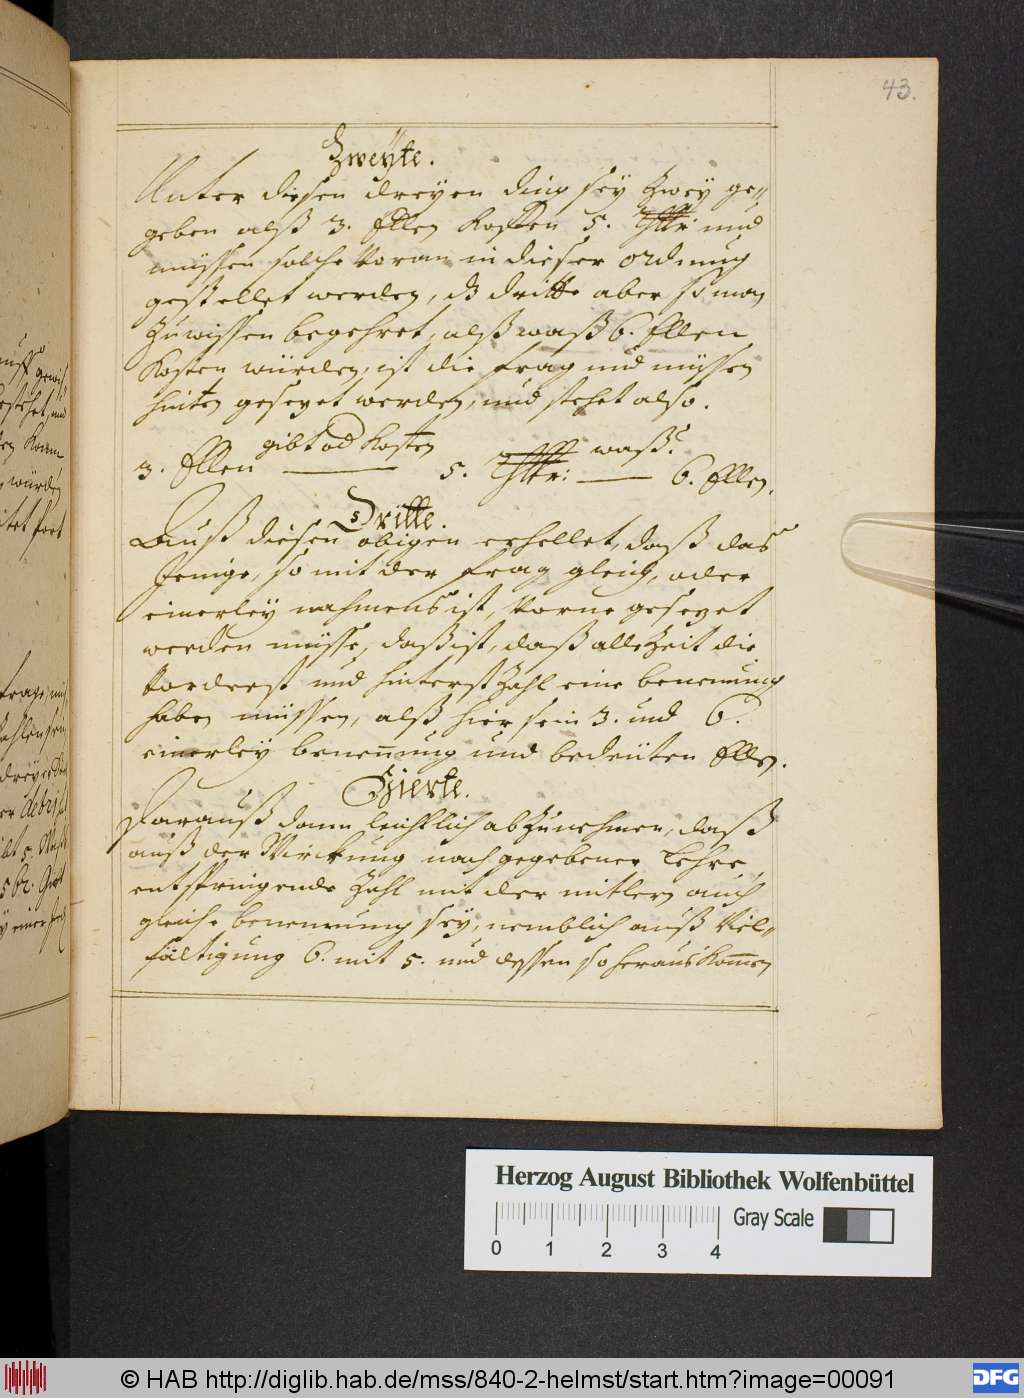 43.
Zweyte.
Unter diesen dreyen ding sey Zwey ge„
geben alß 3. Ellen Kosten 5. Thlr: und
müssen solche Voran in dieser ordnung
gestellet werden, dß dritte aber so man
Zuwissen begehret, alß waß 6. Ellen
Kosten würden, ist die frag und müssen
hinten gesezet werden, und stehet also.
gibt od Kosten waß?
3. Ellen 5. Thlr: 6. Ellen.
Dritte.
Auß diesen obigen erhellet, daß das
Jenige, so mit der frag gleich, oder
einerley nahmens ist, Vorne gesezet
werden müsse, daß ist, daß alle Zeit die
Vorderst und hinterst Zahl eine benennung
haben müssen, alß hier sein 3. und 6.
einerley benennung und bedeüten Ellen.
Vierte.
Darauß dann leichtlich abZunehmen, daß
auß der Würckung nach gegebener Lehre,
entspringende Zahl mit der mitlern auch
gleiche benennung sey, nemblich auß Viel„
fältigung 6. mit 5. und dessen so heraus Kom̄en
Herzog August Bibliothek Wolfenbüttel
Gray Scale
0 1 2 3 4
© HAB http://diglib.hab.de/mss/840-2-helmst/start.htm?image=00091
DFG